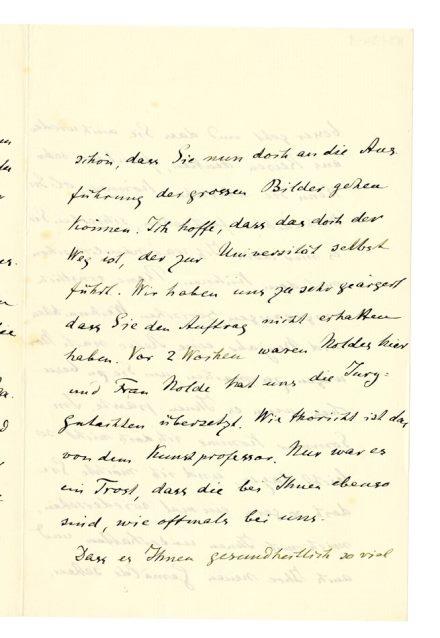 schön, dass Sie nun doch an die Aus
führung der grossen Bilder gehen
können. Ich hoffe, dass das doch der
Weg ist, der zur Universität selbst
führt. Wir haben uns ja sehr geärgert
dass Sie den Auftrag nicht erhalten
haben. Vor 2 Wochen waren Noldes hier
und Frau Nolde hat uns die Jury-
gutachten übersetzt. Wie thöricht ist das
von dem Kunstprofessor. Nur war es
ein Trost, dass die bei Ihnen ebenso
sind, wie oftmals bei uns.
Dass es Ihnen gesundheitlich so viel